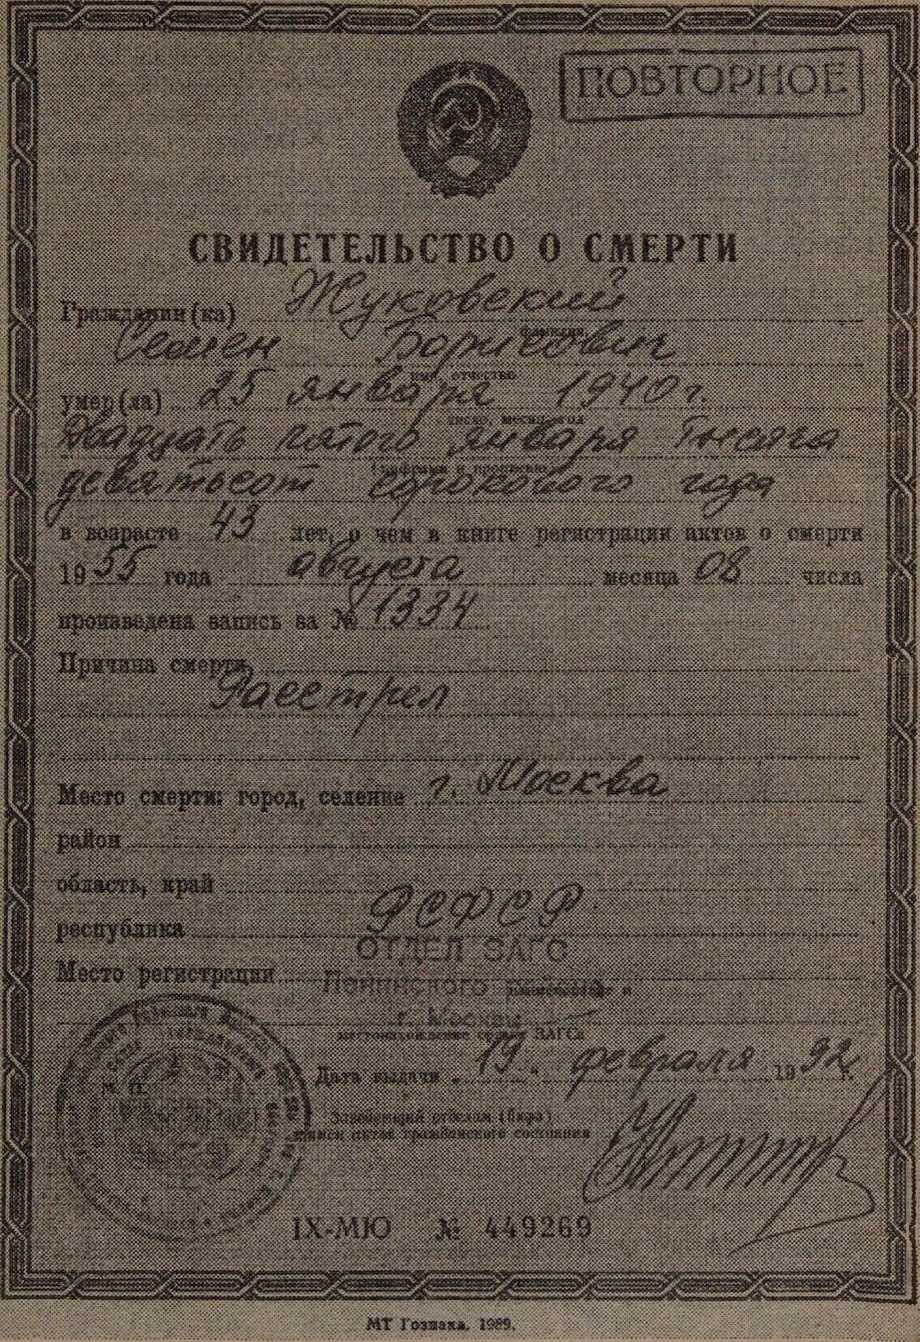 ПОВТОРНОЕ
СВИДЕТЕЛЬСТВО О СМЕРТИ
Гражданин(ка) Жуковский
фамилия
Семен Борисович
имя, отчество
умер(ла) 25 января 1940 г.
число, месяц, год
Двадцать пятого января тысяча
(цифрами и прописью)
девятьсот сорокового года
в возрасте 43 лет, о чем в книге регистрации актов о смерти
1955 года августа месяца 08 числа
произведена запись за № 1334
Причина смерти
Расстрел
Место смерти: город, селение г. Москва
район
область, край
республика РСФСР
ОТДЕЛ ЗАГС
Место регистрации Ленинского
г. Москвы
местонахождение органа ЗАГСа
М. П.
Дата выдачи "19" февраля 1992 г.
Заведующий отделом (бюро)
записи актов гражданского состояния
IX-МЮ № 449269
МТ Гознака. 1989.